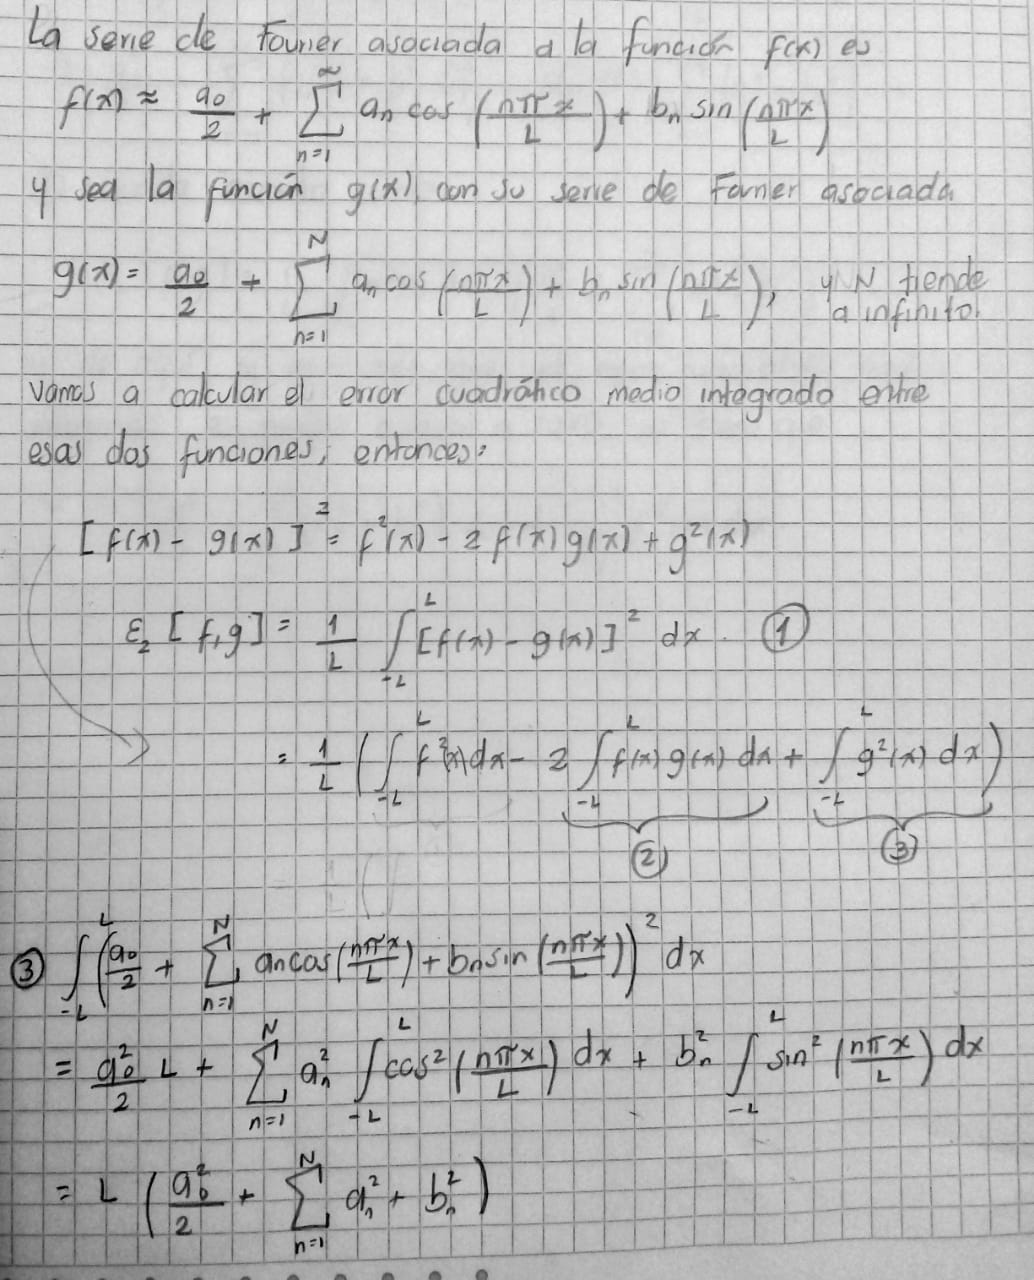 La serie de Fourier asociada a la función f(x) es
f(x) ≈ a₀/2 + ∑_{n=1}^{∞} aₙ cos (nπx/L) + bₙ sin (nπx/L)
y sea la función g(x) con su serie de Fourier asociada
g(x) = a₀/2 + ∑_{n=1}^{N} aₙ cos (nπx/L) + bₙ sin (nπx/L), y N tiende
a infinito.
Vamos a calcular el error cuadrático medio integrado entre
esas dos funciones, entonces:
[f(x) - g(x)]² = f²(x) - 2 f(x) g(x) + g²(x)
ε₂ [f,g] = 1/L ∫_{-L}^{L} [f(x) - g(x)]² dx. ①
= 1/L (∫_{-L}^{L} f²(x) dx - 2 ∫_{-L}^{L} f(x) g(x) dx + ∫_{-L}^{L} g²(x) dx)
② ③
③ ∫_{-L}^{L} (a₀/2 + ∑_{n=1}^{N} aₙ cos (nπx/L) + bₙ sin (nπx/L))² dx
= a₀²/2 L + ∑_{n=1}^{N} aₙ² ∫_{-L}^{L} cos² (nπx/L) dx + bₙ² ∫_{-L}^{L} sin² (nπx/L) dx
= L (a₀²/2 + ∑_{n=1}^{N} aₙ² + bₙ²)